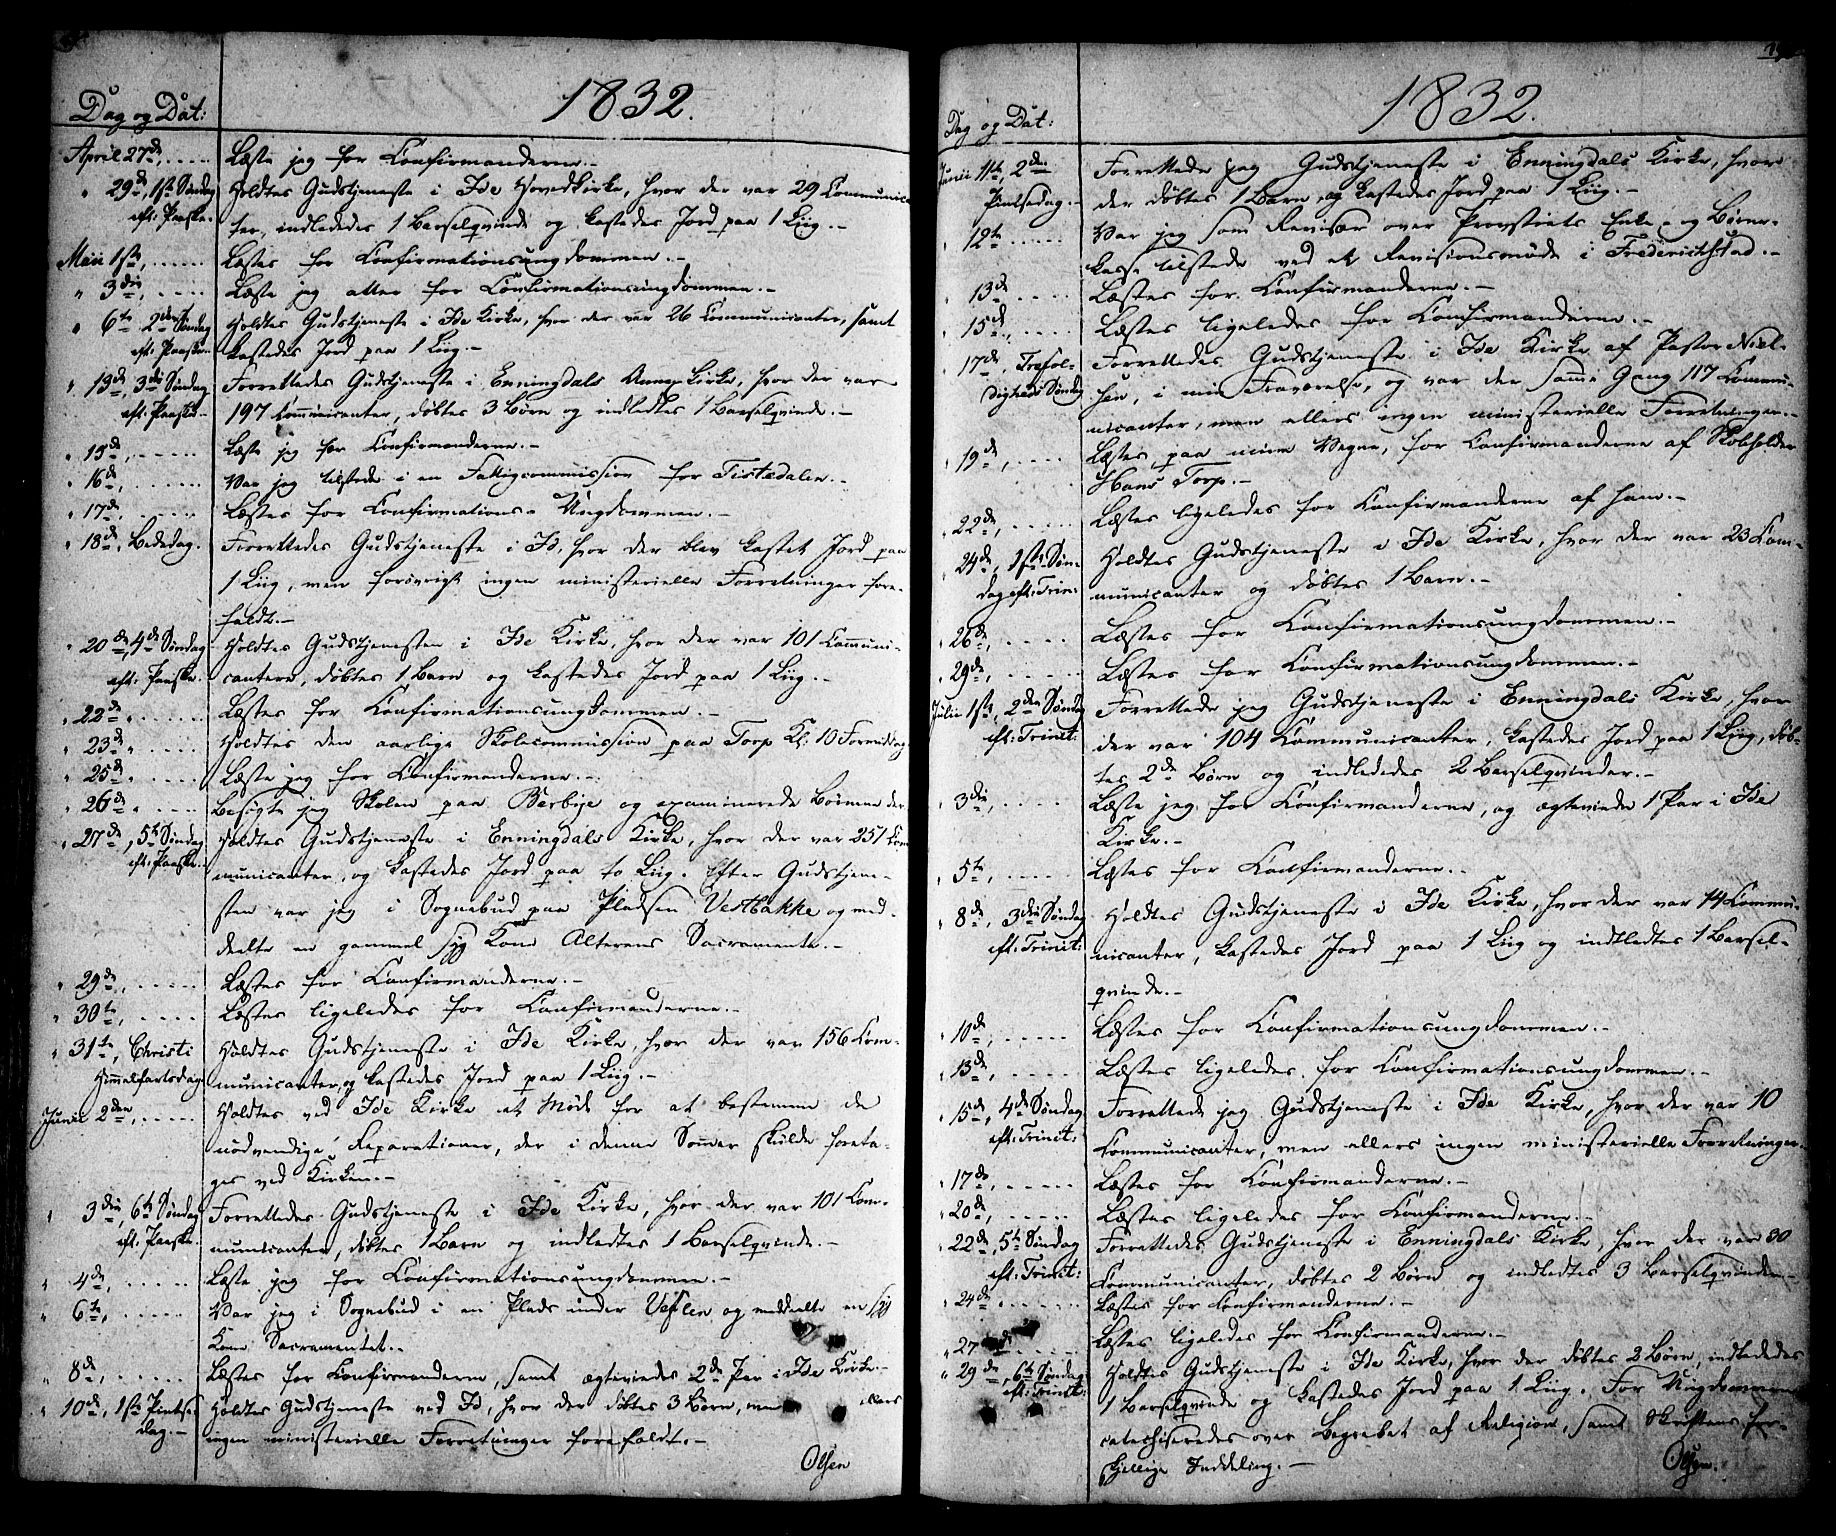 1832.
Dag og Dat:
April 27de, ..... Læste jeg for Confirmanderne.-
" 29de, 1ste Søndag Holdtes Gudstjeneste i Ide Hovedkirke, hvor der var 29 Communican
eft: Paaske.- ter, indledes 1 Barselqvinde og kastedes Jord paa 1 Liig.-
Maii 1ste, ..... Læstes for Confirmationsungdommen.-
" 3die, ..... Læste jeg atter for Confirmationsungdommen.-
" 6te, 2den Søndag Holdtes Gudstjeneste i Ide Kirke, hvor der var 26 Communicanter, samt
eft: Paaske.- kastedes Jord paa 1 Liig.-
" 13de, 3die Søndag Forrettedes Gudstjeneste i Enningdals Annex Kirke, hvor der var
eft: Paaske.- 197 Communicanter, døbtes 3 Børn og indledtes 1 Barselqvinde.-
" 15de, ..... Læste jeg for Confirmanderne.-
" 16de, ..... Var jeg tilstede i en Fattigcommission for Tistedalen.-
" 17de, ..... Læstes for Confirmations-Ungdommen.-
" 18de, Bededag. Forrettedes Gudstjeneste i Id, hvor der blev kastet Jord paa
1 Liig, men forøvrigt ingen ministerielle Forretninger fore-
faldt.-
" 20de, 4de Søndag Holdtes Gudstjenesten i Ide Kirke, hvor der var 101 Communi-
eft: Paaske. cantere, døbtes 1 Barn og kastedes Jord paa 1 Liig.-
" 22de " ..... Læstes for Confirmationsungdommen.-
" 23de " ..... Holdtes den aarlige Skolecommission paa Torp Kl: 10 Formiddag
" 25de " ..... Læste jeg for Confirmanderne.-
" 26de " ..... Besøgte jeg Skolen paa Berbye og examinerede Børnene der
" 27de, 5te Søndag Holdtes Gudstjeneste i Enningdals Kirke, hvor der var 257 Com
eft: Paaske.- municanter, og kastedes Jord paa to Liig. Efter Gudstjene-
sten var jeg i Sognebud paa Pladsen Vestbakke og med-
deelte en gammel syg Kone Alterens Sacramente.-
" 29de, ..... Læstes for Confirmanderne.-
" 30te, ..... Læstes ligeledes for Confirmanderne.-
" 31te, Christi Holdtes Gudstjeneste i Ide Kirke, hvor der var 156 Com-
Himmelfartsdag municanter, og kastedes Jord paa 1 Liig.-
Junii 2den, ..... Holdtes ved Ide Kirke et Møde for at bestemme de
nødvendige Reparationer, der i denne Sommer skulde foreta-
ges ved Kirken.-
" 3die, 6te Søndag Forrettedes Gudstjeneste i Ide Kirke, hvor der var 101 Com-
eft: Paaske. municanter, døbtes 1 Barn og indledtes 1 Barselqvinde.-
" 4de, ..... Læste jeg for Confirmationsungdommen.-
" 6te, ..... Var jeg i Sognebud i en Plads under Veslen og meddeelte en syg
Kone Sacramentet.-
" 8de, ..... Læstes for Confirmanderne, samt ægteviedes 2de Par i Ide Kirke.-
" 10de, 1ste Pintse- Holdtes Gudstjeneste ved Id, hvor der døbtes 3 Børn, men ellers
dag.- ingen ministerielle Forretninger forefaldt.-
Olsen
1832.
Dag og Dat:
Junii 11te, 2den Forrettede jeg Gudstjeneste i Enningdals Kirke, hvor
Pintsedag.- der døbtes 1 Barn og kastedes Jord paa 1 Liig.-
" 12te ..... Var jeg som Revisor over Provstiets Enke- og Børne-
kasse tilstede ved et Revisionsmøde i Frederichstad.-
" 13de ..... Læstes for Confirmanderne.-
" 15de, ..... Læstes ligeledes for Confirmanderne.-
" 17de, Trefol- Forrettedes Gudstjeneste i Ide Kirke af Pastor Niel-
digheds Søndag sen, i min Fraværelse, og var der samme Gang 117 Commu-
nicanter, men ellers ingen ministerielle Forretninger.-
" 19de, ..... Læstes paa mine Vegne, for Confirmanderne af Skoleholder
Hans Torp.-
" 22de, ..... Læstes ligeledes for Confirmanderne af ham.-
" 24de, 1ste Søn- Holdtes Gudstjeneste i Ide Kirke, hvor der var 23 Com-
dag eft: Trin: municanter og døbtes 1 Barn.-
" 26de, ..... Læstes for Confirmationsungdommen.-
" 29de, ..... Læstes for Confirmationsungdommen.-
Julii 1ste, 2den Søndag Forrettede jeg Gudstjeneste i Enningdals Kirke, hvor
eft: Trinit: der var 104 Communicanter, kastedes Jord paa 1 Liig, døb-
tes 2de Børn og indledes 2 Barselqvinder.-
" 3die, ..... Læste jeg for Confirmanderne, og ægteviede 1 Par i Ide
Kirke.-
" 5te, ..... Læstes for Confirmanderne.-
" 8de, 3die Søndag Holdtes Gudstjeneste i Ide Kirke, hvor der var 14 Commu-
eft: Trinit: nicanter, kastedes Jord paa 1 Liig og indledtes 1 Barsel-
qvinde.-
" 10de, ..... Læstes for Confirmationsungdommen.-
" 13de, ..... Læstes ligeledes for Confirmationsungdommen.-
" 15de, 4de Søndag Forrettede jeg Gudstjeneste i Ide Kirke, hvor der var 10
eft: Trinit: Communicanter, men ellers ingen ministerielle Forretninger.
" 17de, ..... Læstes for Confirmanderne.-
" 20de, ..... Læstes ligeledes for Confirmanderne.-
" 22de, 5te Søndag Forrettedes Gudstjeneste i Enningdals Kirke, hvor der var 80
eft: Trinit: Communicanter, døbtes 2 Børn og indledtes 3 Barselqvinder.-
" 24de, ..... Læstes for Confirmanderne.-
" 27de ..... Læstes ligeledes for Confirmanderne.-
" 29de, 6te Søndag Holdtes Gudstjeneste i Ide Kirke, hvor der døbtes 2 Børn, indledes
eft: Trinit: 1 Barselqvinde og kastedes Jord paa 1 Liig. For Ungdommen
catechiseredes over Begrebet af Religion, samt Skriftens for-
skjellige Inddeling.-
Olsen.